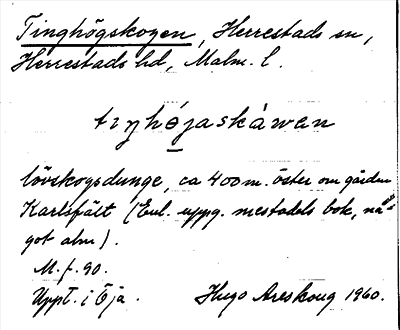 Tinghögskogen, Herrestads sn,
Herrestads hd, Malm. l.
tɩŋhǿjaskàwan
lövskogsdunge, ca 400 m. öster om gården
Karlsfält (Enl. uppg. mestadels bok, nå-
got alm).
M. f. 90.
Uppt. i Öja. Hugo Areskoug 1960.